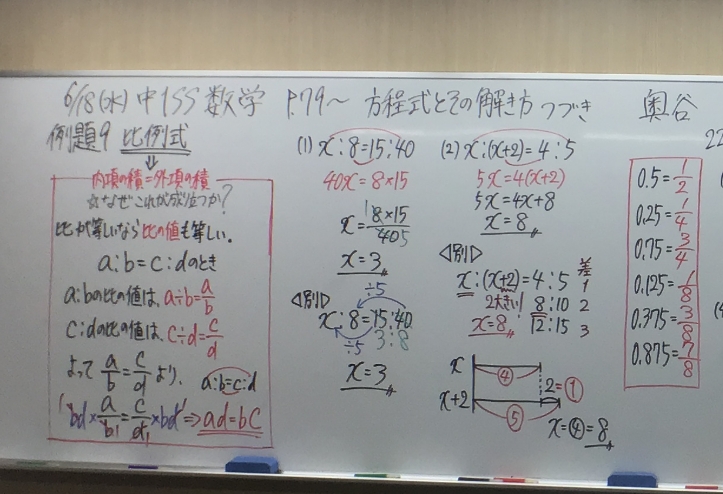 6/18(水) 中1SS 数学 P.79～ 方程式とその解き方 つづき 奥谷
例題9 比例式
内項の積=外項の積
☆なぜこれが成り立つか?
比が等しいなら比の値も等しい。
a:b=c:dのとき
a:bの比の値は、a÷b=a/b
c:dの比の値は、c÷d=c/d
よって a/b=c/d より、 a:b=c:d
bd×a/b=c/d×bd ⇒ ad=bc
(1) x:8=15:40
40x=8×15
x=8×15/40
x=3
〈別〉
÷5
x:8=15:40
÷5 3:8
x=3
(2) x:(x+2)=4:5
5x=4(x+2)
5x=4x+8
x=8
〈別〉
差
x:(x+2)=4:5 1
2大きい! 8:10 2
x=8 12:15 3
x ④
2=①
x+2 ⑤
x=④=8
0.5=1/2
0.25=1/4
0.75=3/4
0.125=1/8
0.375=3/8
0.875=7/8
22